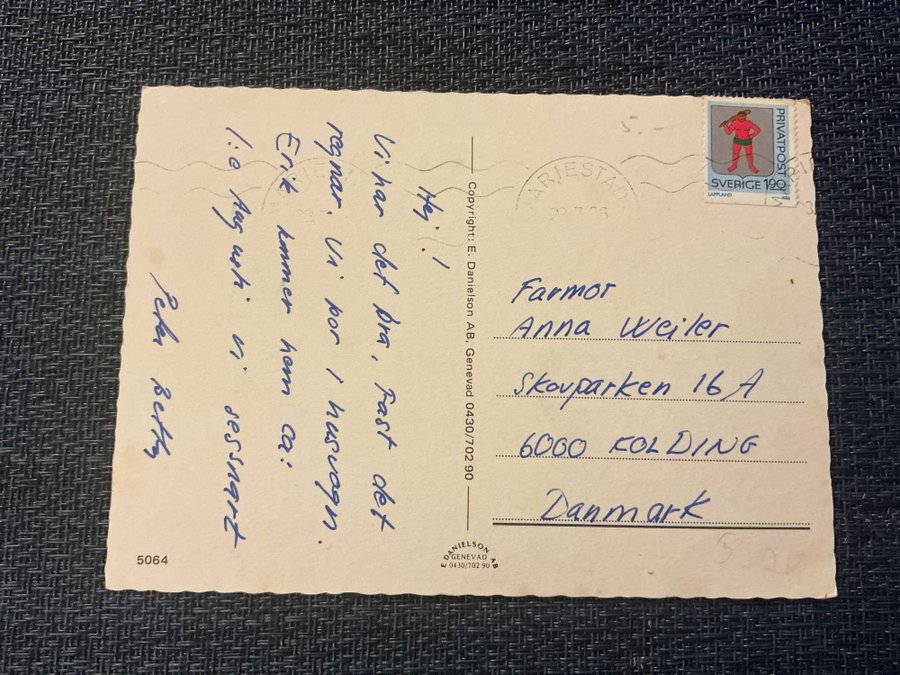 Hej!
Vi har det bra, Fast det
regnar. Vi bor i husvagn.
Erik kommer hem ca:
1:e Augusti vi sessnart
Peter Betty
Copyright: E. Danielson AB, Genevad 0430/702 90
E DANIELSON AB
GENEVAD
0430/702 90
5064
5.-
ARIESTAD
PRIVATPOST
SVERIGE 1.90
LAPPLAND
Farmor
Anna Weiler
Skovparken 16 A
6000 KOLDING
Danmark